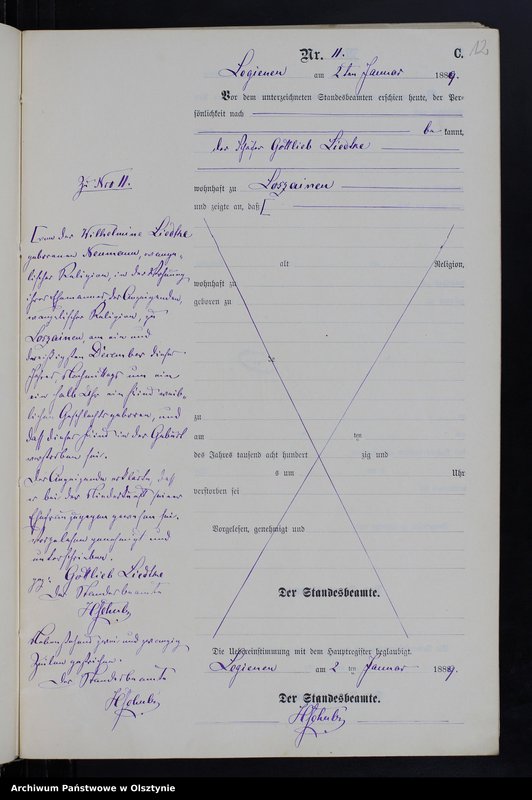 12
Nr. 11. C.
Logienen am 2ten Januar 1889.
Vor dem unterzeichneten Standesbeamten erschien heute, der Per-
sönlichkeit nach
be kannt,
der Gottlieb Liedtke
wohnhaft zu Loszainen
und zeigte an, daß [
alt Religion,
wohnhaft zu
geboren zu
zu
am ten
des Jahres tausend acht hundert zig und
s um Uhr
verstorben sei
Vorgelesen, genehmigt und
Der Standesbeamte.
Die Uebereinstimmung mit dem Hauptregister beglaubigt.
Logienen am 2 ten Januar 1889.
Der Standesbeamte.
Zu Nro 11.
[von der Wilhelmine Liedtke
geborenen Neumann, evange-
lischer Religion, in der Wohnung
ihres Ehemannes des Anzeigenden,
evangelischer Religion, zu
Loszainen, am ein und
dreißigsten December dieses
Jahres, Nachmittags um ein
ein halb Uhr ein Kind weib-
lichen Geschlechts geboren, und
daß dieses Kind in der Geburt
verstorben sei.
Der Anzeigende erklärte, daß
er bei der Niederkunft seiner
Ehefrau zugegen gewesen sei.
Vorgelesen genehmigt und
unterschrieben.
gez: Gottlieb Liedtke
Der Standesbeamte
Nebenstehend zwei und zwanzig
Zeilen gestrichen.
Der Standesbeamte
Archiwum Państwowe w Olsztynie